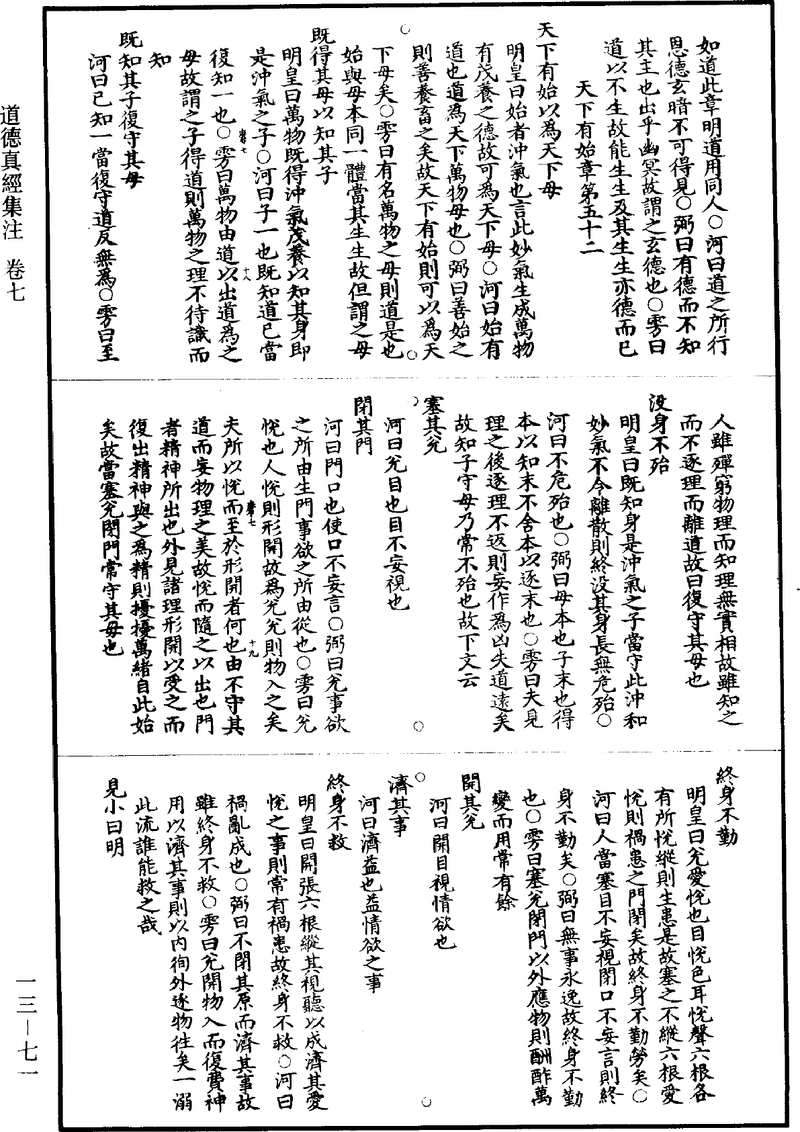 如道此章明道用同人〇河曰道之所行
恩德玄暗不可得見〇弼曰有德而不知
其主也出乎幽冥故謂之玄德也〇雱曰
道以不生故能生生及其生生亦德而已
天下有始章第五十二
天下有始以為天下母
明皇曰始者沖氣也言此妙氣生成萬物
有茂養之德故可為天下母〇河曰始有
道也道為天下萬物母也〇弼曰善始之
則善養畜之矣故天下有始則可以為天
下母矣〇雱曰有名萬物之母則道是也
始與母本同一體當其生生故但謂之母
既得其母以知其子
明皇曰萬物既得沖氣茂養以知其身即
是沖氣之子〇河曰子一也既知道已當
復知一也〇雱曰萬物由道以出道為之
母故謂之子得道則萬物之理不待識而
知
既知其子復守其母
河曰已知一當復守道反無為〇雱曰至
人雖殫窮物理而知理無實相故雖知之
而不逐理而離道故曰復守其母也
沒身不殆
明皇曰既知身是沖氣之子當守此沖和
妙氣不令離散則終没其身長無危殆〇
河曰不危殆也〇弼曰母本也子末也得
本以知末不舍本以逐末也〇雱曰夫見
理之後逐理不返則妄作為凶失道遠矣
故知子守母乃常不殆也故下文云
塞其兊
河曰兊目也目不妄視也
閉其門
河曰門口也使口不妄言〇弼曰兊事欲
之所由生門事欲之所由從也〇雱曰兊
悅也人悅則形開故為兊兊則物入之矣
夫所以悅而至於形開者何也由不守其
道而妄物理之美故悅而隨之以出也門
者精神所出也外見諸理形開以愛之而
復出精神與之為精則擾擾萬緒自此始
矣故當塞兊閉門常守其母也
終身不勤
明皇曰兊愛悅也目悅色耳悅聲六根各
有所悅縱則生患是故塞之不縱六根愛
悅則禍患之門閉矣故終身不勤勞矣〇
河曰人當塞目不妄視閉口不妄言則終
身不勤矣〇弼曰無事永逸故終身不勤
也〇雱曰塞兊閉門以外應物則酬酢萬
變而用常有餘
開其兊
河曰開目視情欲也
濟其事
河曰濟益也益情欲之事
終身不救
明皇曰開張六根縱其視聽以成濟其愛
悅之事則常有禍患故終身不救〇河曰
禍亂成也〇弼曰不閉其原而濟其事故
雖終身不救〇雱曰兊開物入而復費神
用以濟其事則以內徇外逐物往矣一溺
此流誰能救之哉
見小曰明
道德真經集注 卷七
一三—七一